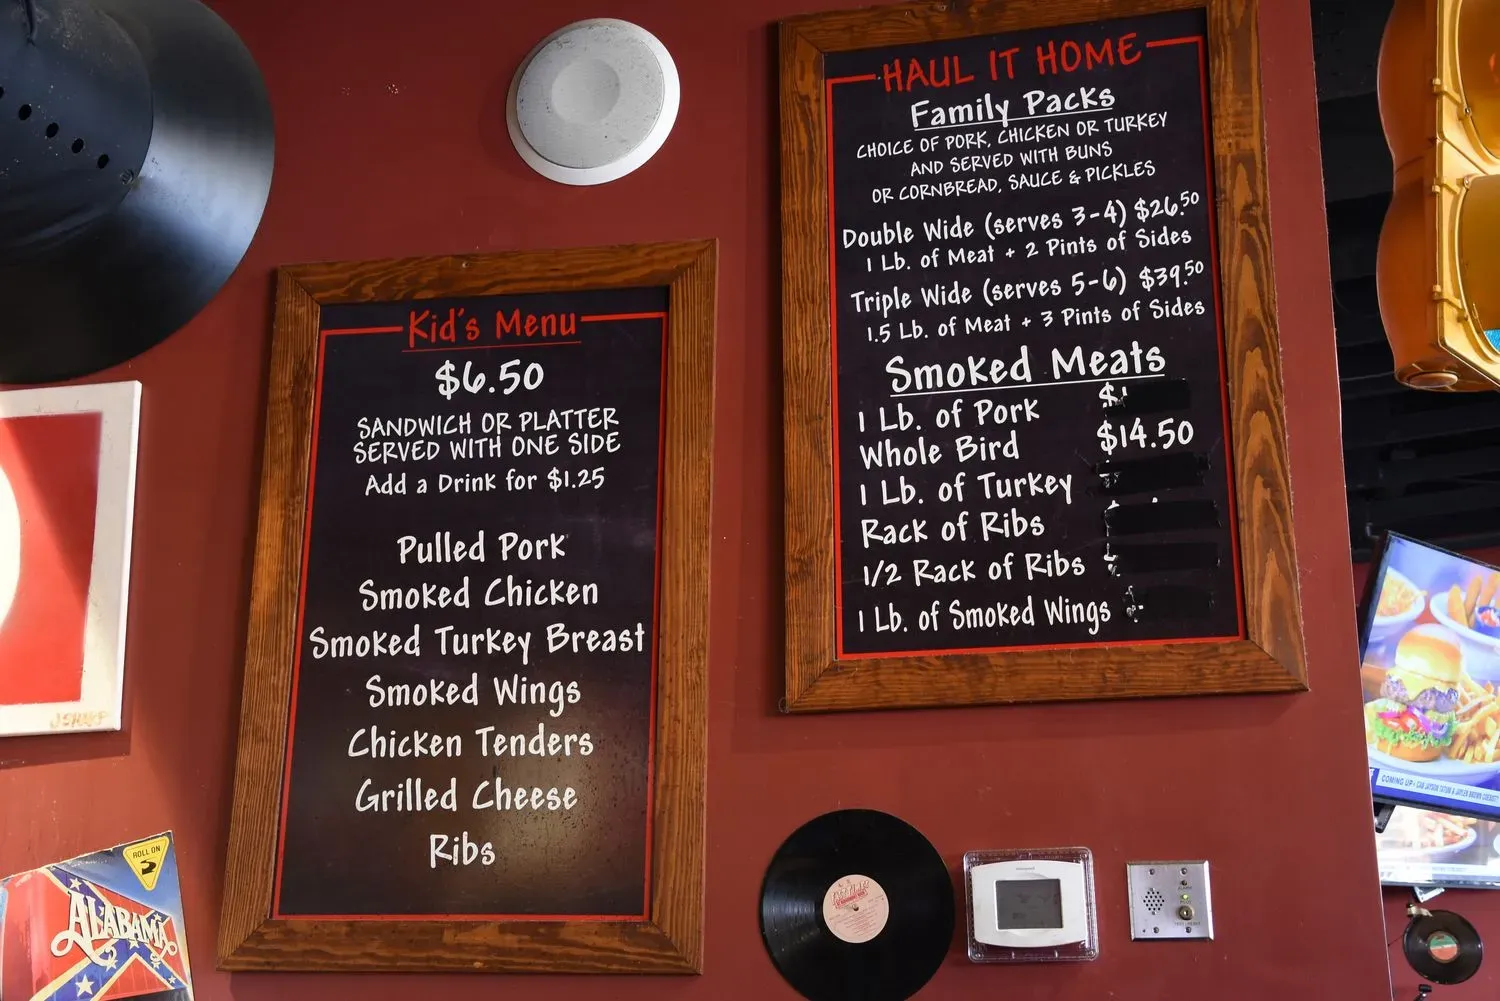 Kid's Menu
$6.50
SANDWICH OR PLATTER
SERVED WITH ONE SIDE
Add a Drink for $1.25
Pulled Pork
Smoked Chicken
Smoked Turkey Breast
Smoked Wings
Chicken Tenders
Grilled Cheese
Ribs
HAUL IT HOME
Family Packs
CHOICE OF PORK, CHICKEN OR TURKEY
AND SERVED WITH BUNS
OR CORNBREAD, SAUCE & PICKLES
Double Wide (serves 3-4) $26.50
1 Lb. of Meat + 2 Pints of Sides
Triple Wide (serves 5-6) $39.50
1.5 Lb. of Meat + 3 Pints of Sides
Smoked Meats
1 Lb. of Pork
Whole Bird $14.50
1 Lb. of Turkey
Rack of Ribs
1/2 Rack of Ribs
1 Lb. of Smoked Wings
ROLL ON
ALABAMA
J.SHARP
COMING UP